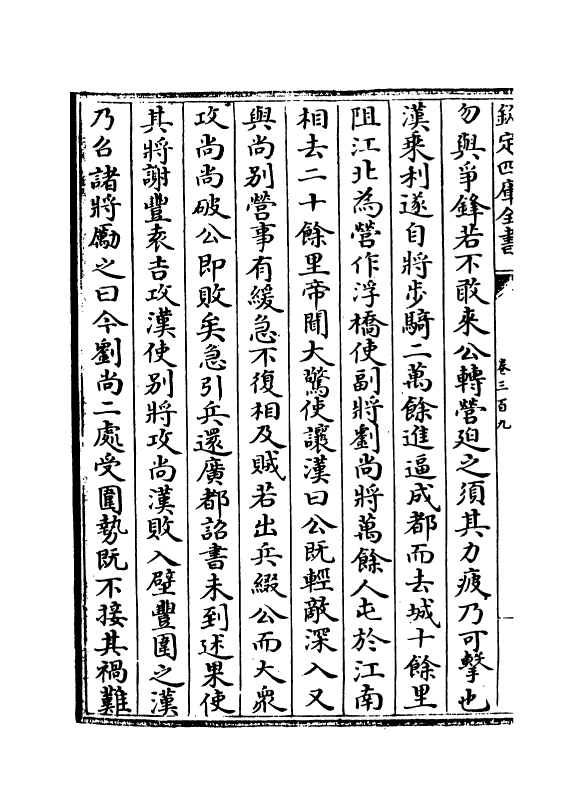 欽定四庫全書
卷三百九
勿與爭鋒若不敢來公轉營廹之須其力疲乃可擊也
漢乘利遂自將步騎二萬餘進逼成都而去城十餘里
阻江北為營作浮橋使副將劉尚將萬餘人屯於江南
相去二十餘里帝聞大驚使讓漢曰公既輕敵深入又
與尚別營事有緩急不復相及賊若出兵綴公而大衆
攻尚尚破公即敗矣急引兵還廣都詔書未到述果使
其將謝豐袁吉攻漢使別將攻尚漢敗入壁豐圍之漢
乃召諸將勵之曰今劉尚二處受圍勢既不接其禍難